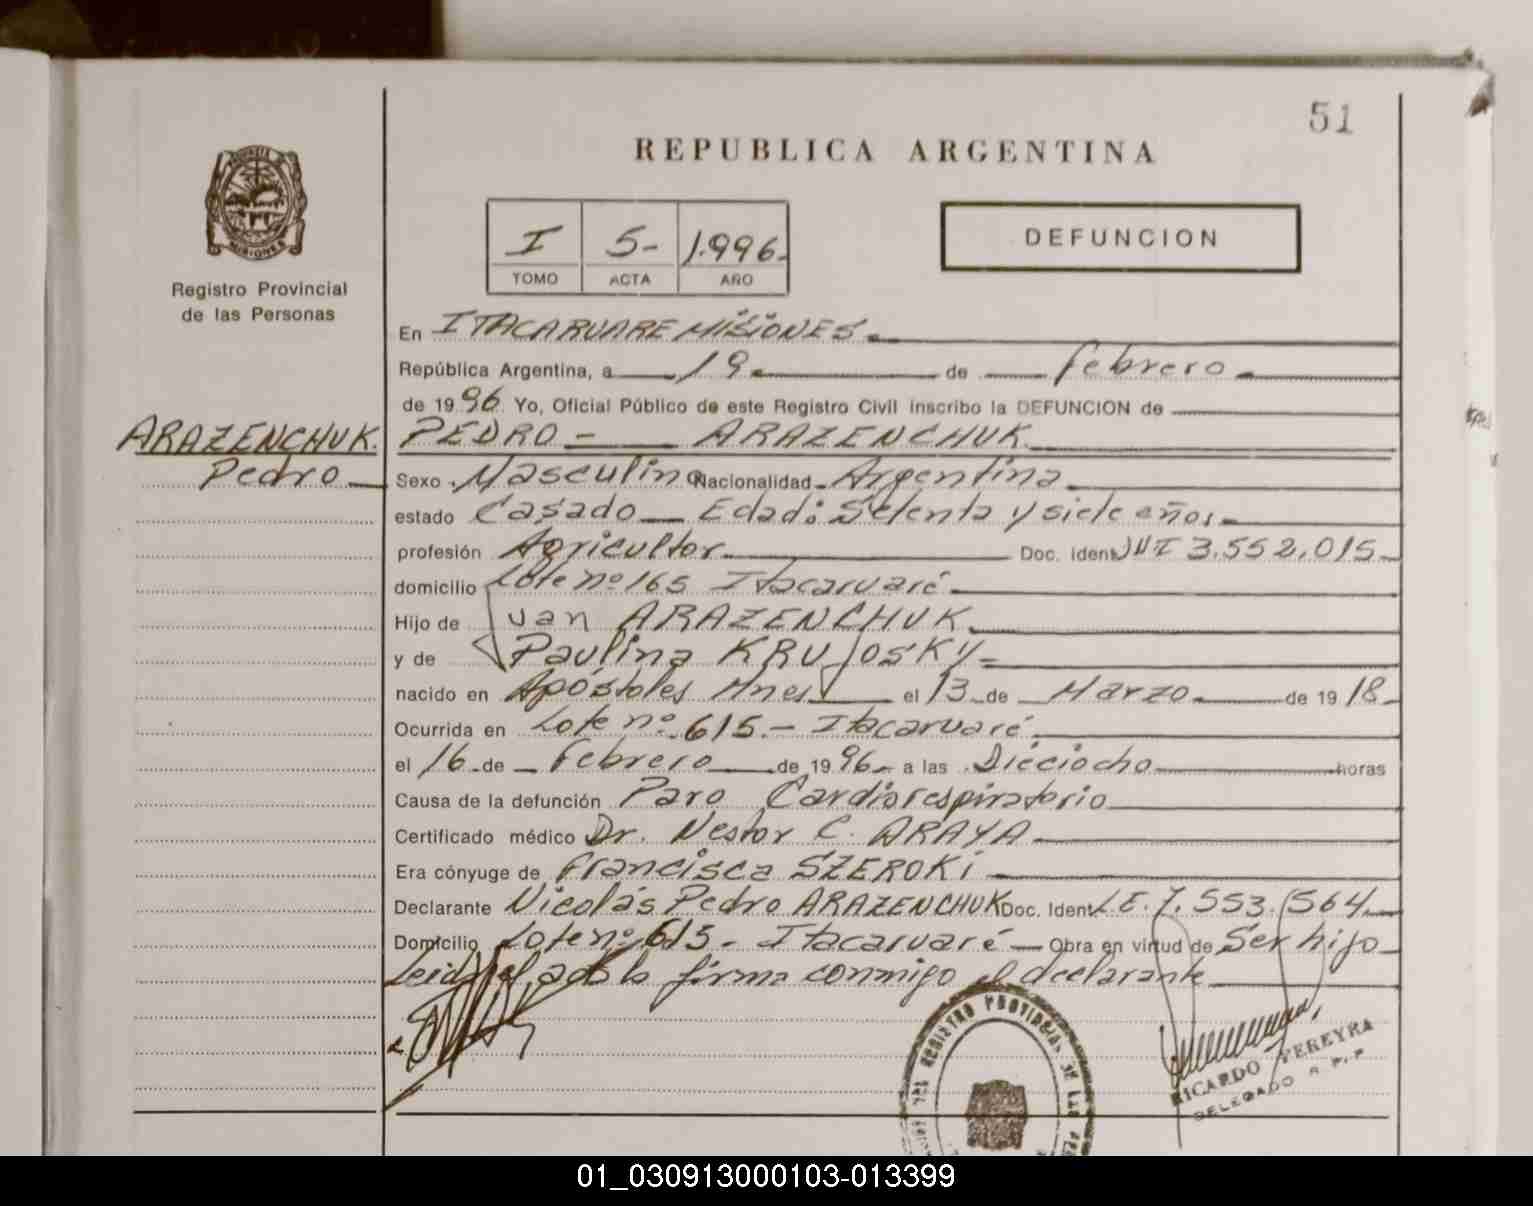 51
REPUBLICA ARGENTINA
PROVINCIA DE
MISIONES
Registro Provincial
de las Personas
I 5- 1.996.
TOMO ACTA AÑO
DEFUNCION
En ITACARUARE MISIONES.
República Argentina, a 19 de febrero
de 1996 Yo, Oficial Público de este Registro Civil inscribo la DEFUNCION de
ARAZENCHUK.
Pedro
PEDRO - ARAZENCHUK
Sexo Masculino Nacionalidad Argentina
estado Casado Edad: Setenta y siete años
profesión Agricultor Doc. Ident. 3.552.015
domicilio Lote nº 165 Itacaruaré
Hijo de Juan ARAZENCHUK
y de Paulina KRUJOSKY
nacido en Apóstoles Mnes el 13 de Marzo de 1918
Ocurrida en Lote nº 615.- Itacaruaré
el 16 de febrero de 1996 a las Dieciocho horas
Causa de la defunción Paro Cardiorespiratorio
Certificado médico Dr. Nestor C. ARAYA
Era cónyuge de Francisca SZEROKI
Declarante Nicolás Pedro ARAZENCHUK Doc. Ident. L.E. 7.553.564
Domicilio Lote nº 615 - Itacaruaré Obra en virtud de Ser hijo
Leida el acta la firma conmigo el declarante
REGISTRO PROVINCIAL DE LAS
RICARDO PEREYRA
DELEGADO R.P.P
01_030913000103-013399